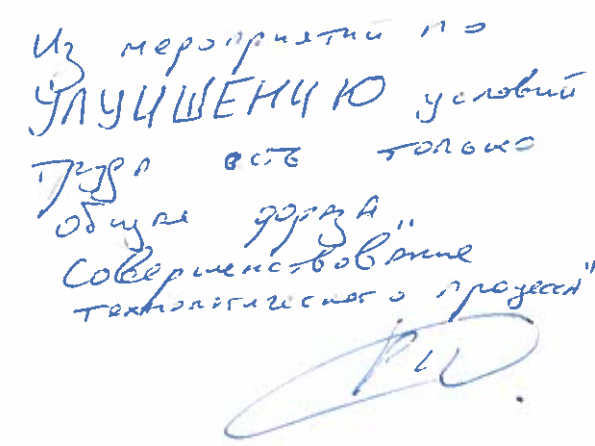 Из мероприятий по
УЛУЧШЕНИЮ условий
труда есть только
общая фраза
"Совершенствование
технологического процесса"